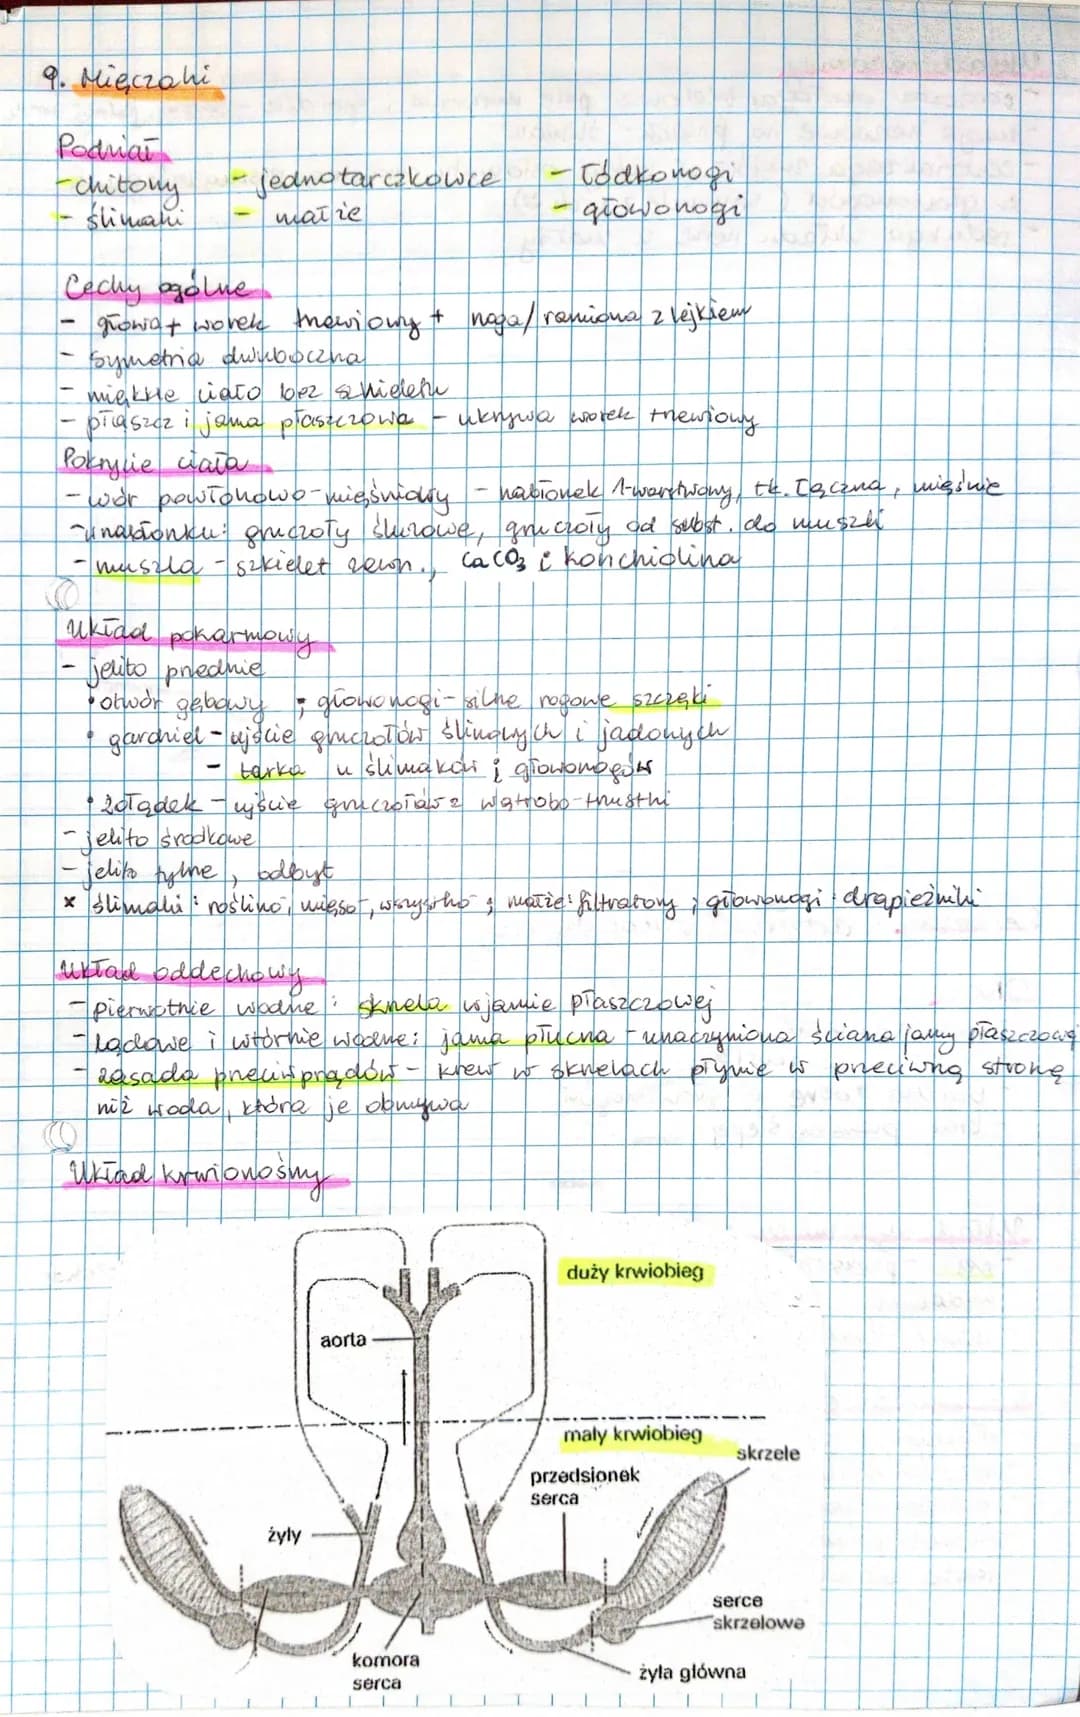 9. Mięczaki
Podział
- chitony - jednotarczkowce - łódkonogi
- ślimaki - małże - głowonogi
Cechy ogólne
- głowa + worek trzewiowy + noga/ramiona z lejkiem
- symetria dwuboczna
- miękkie ciało bez szkieletu
- płaszcz i jama płaszczowa - ukrywa worek trzewiowy
Pokrycie ciała
- wór powłokowo-mięśniowy - nabłonek 1-warstwowy, tk. łączna, mięśnie
- w nabłonku: gruczoły śluzowe, gruczoły od subst. do muszli
- muszla - szkielet zewn., CaCO3 i konchiolina
Układ pokarmowy
- jelito przednie
• otwór gębowy ; głowonogi - silne rogowe szczęki
• gardziel - ujście gruczołów ślinowych i jadowych
- tarka u ślimaków i głowonogów
• żołądek - ujście gruczołów z wątrobo-trzustki
- jelito środkowe
- jelito tylne, odbyt
x ślimaki: roślino, mięso, wszystko ; małże: filtratory ; głowonogi: drapieżniki
Układ oddechowy
- pierwotnie wodne: skrzela w jamie płaszczowej
- lądowe i wtórnie wodne: jama płucna - unaczyniona ściana jamy płaszczowej
- zasada przeciwprądów - krew w skrzelach płynie w przeciwną stronę
niż woda, która je obmywa
Układ krwionośny
duży krwiobieg
aorta
mały krwiobieg
skrzele
przedsionek
serca
żyły
serce
skrzelowe
komora
serca
żyła główna